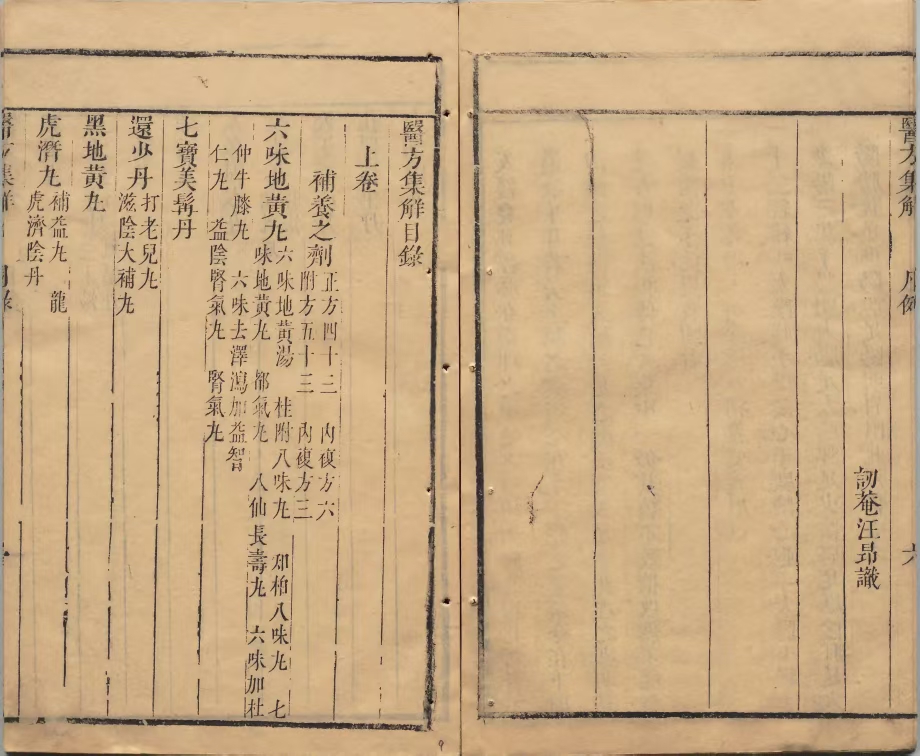 醫方集解 凡例 六
訒菴汪昂識
醫方集解目錄
上卷
補養之劑 正方四十三 內復方六
附方五十三 內複方三
六味地黃丸 六味地黃湯 桂附八味丸 知柏八味丸 七
味地黃丸 都氣丸 八仙長壽丸 六味加杜
仲牛膝丸 六味去澤瀉加益智
仁丸 益陰腎氣丸 腎氣丸
七寶美髯丹
還少丹 打老兒丸
滋陰大補丸
黑地黃丸
虎潛丸 補益丸 龍
虎濟陰丹
醫方集解 目錄